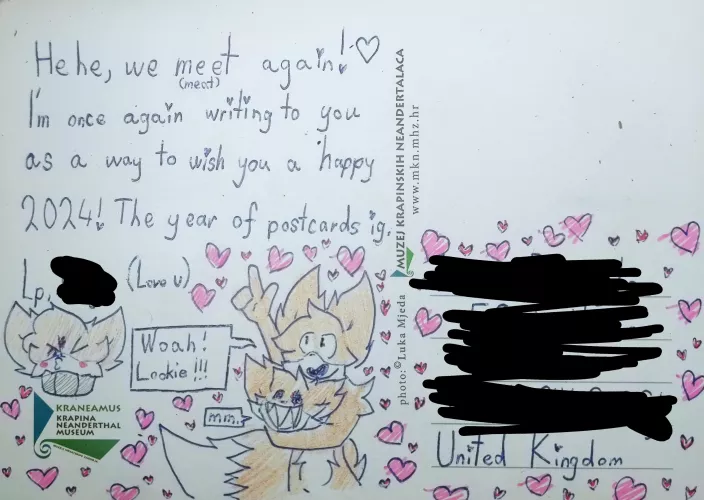 Hehe, we meet again!
(meat)
I'm once again writing to you
as a way to wish you a happy
2024! The year of postcards ig.
Lp,
(Love u)
Woah!
Lookie!!!
mm.
KRANEAMUS
KRAPINA
NEANDERTHAL
MUSEUM
MUZEJ KRAPINSKIH NEANDERTALACA
www.mkn.mhz.hr
photo:©Luka Mjeda
United Kingdom